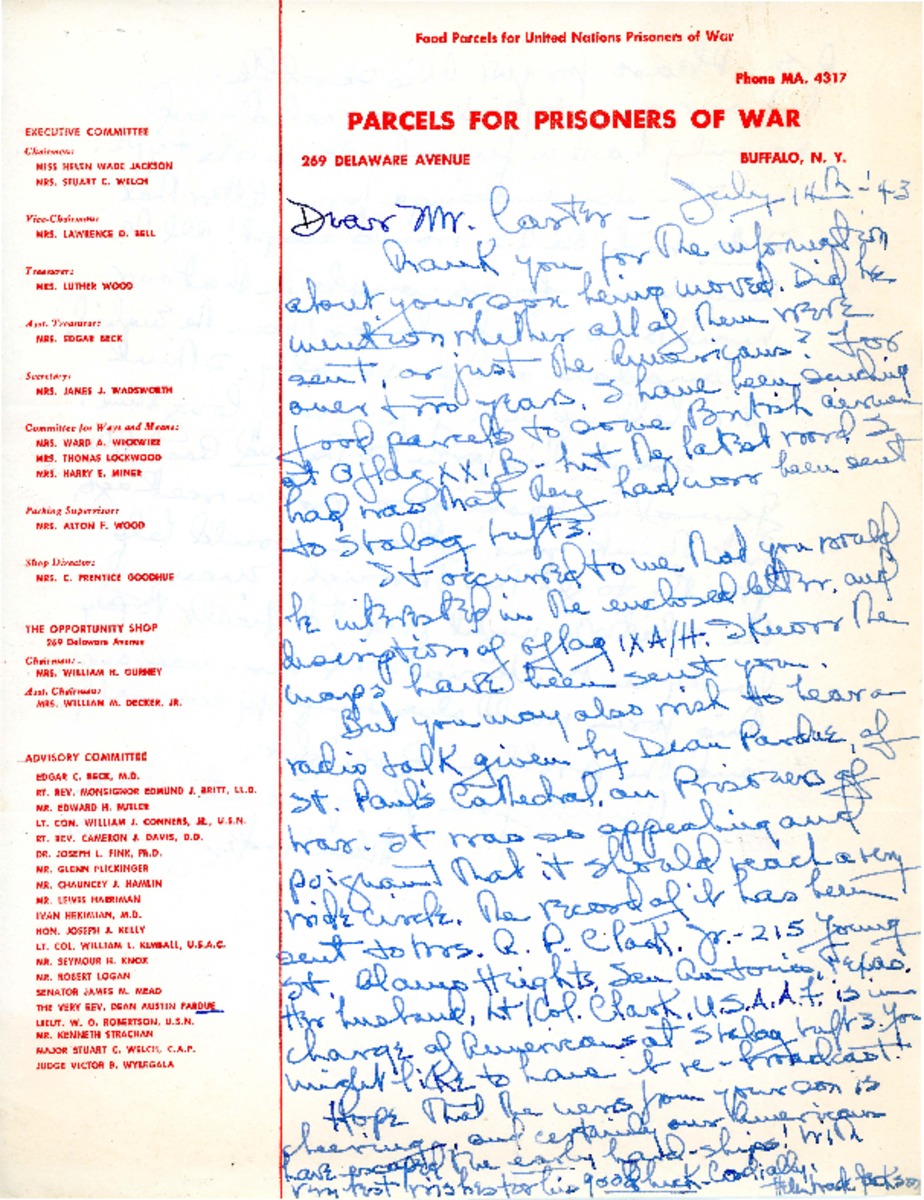 Food Parcels for United Nations Prisoners of War
Phone MA. 4317
PARCELS FOR PRISONERS OF WAR
269 DELAWARE AVENUE
BUFFALO, N. Y.
EXECUTIVE COMMITTEE
Chairmen:
MISS HELEN WADE JACKSON
MRS. STUART C. WELCH
Vice-Chairman:
MRS. LAWRENCE D. BELL
Treasurer:
MRS. LUTHER WOOD
Asst. Treasurer:
MRS. EDGAR BECK
Secretary:
MRS. JAMES J. WADSWORTH
Committee for Ways and Means:
MRS. WARD A. WICKWIRE
MRS. THOMAS LOCKWOOD
MRS. HARRY E. MINER
Packing Supervisor:
MRS. ALTON F. WOOD
Shop Director:
MRS. C. PRENTICE GOODHUE
THE OPPORTUNITY SHOP
269 Delaware Avenue
Chairman:
MRS. WILLIAM H. GURNEY
Asst. Chairman:
MRS. WILLIAM M. DECKER, JR.
ADVISORY COMMITTEE
EDGAR C. BECK, M.D.
RT. REV. MONSIGNOR EDMUND J. BRITT, LL.D.
MR. EDWARD H. BUTLER
LT. COM. WILLIAM J. CONNERS, JR., U.S.N.
RT. REV. CAMERON J. DAVIS, D.D.
DR. JOSEPH L. FINK, PH.D.
MR. GLENN FLICKINGER
MR. CHAUNCEY J. HAMLIN
MR. LEWIS HARRIMAN
IVAN HEKIMIAN, M.D.
HON. JOSEPH J. KELLY
LT. COL. WILLIAM L. KIMBALL, U.S.A.C.
MR. SEYMOUR H. KNOX
MR. ROBERT LOGAN
SENATOR JAMES M. MEAD
THE VERY REV. DEAN AUSTIN PARDUE
LIEUT. W. O. ROBERTSON, U.S.N.
MR. KENNETH STRACHAN
MAJOR STUART C. WELCH, C.A.P.
JUDGE VICTOR B. WYLEGALA
July 14th - '43
Dear Mr. Carter -
Thank you for the information
about your son being moved. Did he
mention whether all of them were
sent, or just the Americans? For
over two years, I have been sending
food parcels to some British airmen
at Oflag XXI B - but the latest word I
had was that they had now been sent
to Stalag Luft 3.
It occurred to me that you would
be interested in the enclosed letter, and
description of Oflag IX A/H. I know the
maps have been sent you.
But you may also wish to hear a
radio talk given by Dean Pardue, of
St. Paul's Cathedral, on Prisoners of
War. It was so appealing and
poignant that it should reach a very
wide circle. The record of it has been
sent to Mrs. A. P. Clark, Jr. - 215 Young
St. Alamo Heights, San Antonio, Texas.
Her husband, Lt/Col. Clark, U.S.A.A.F. is in
charge of Americans at Stalag Luft 3. You
might like to have it re-broadcast!
Hope that the news from your son is
cheering, and certainly our Americans
have escaped the early hard-ships! With
very best wishes for his good luck - Cordially,